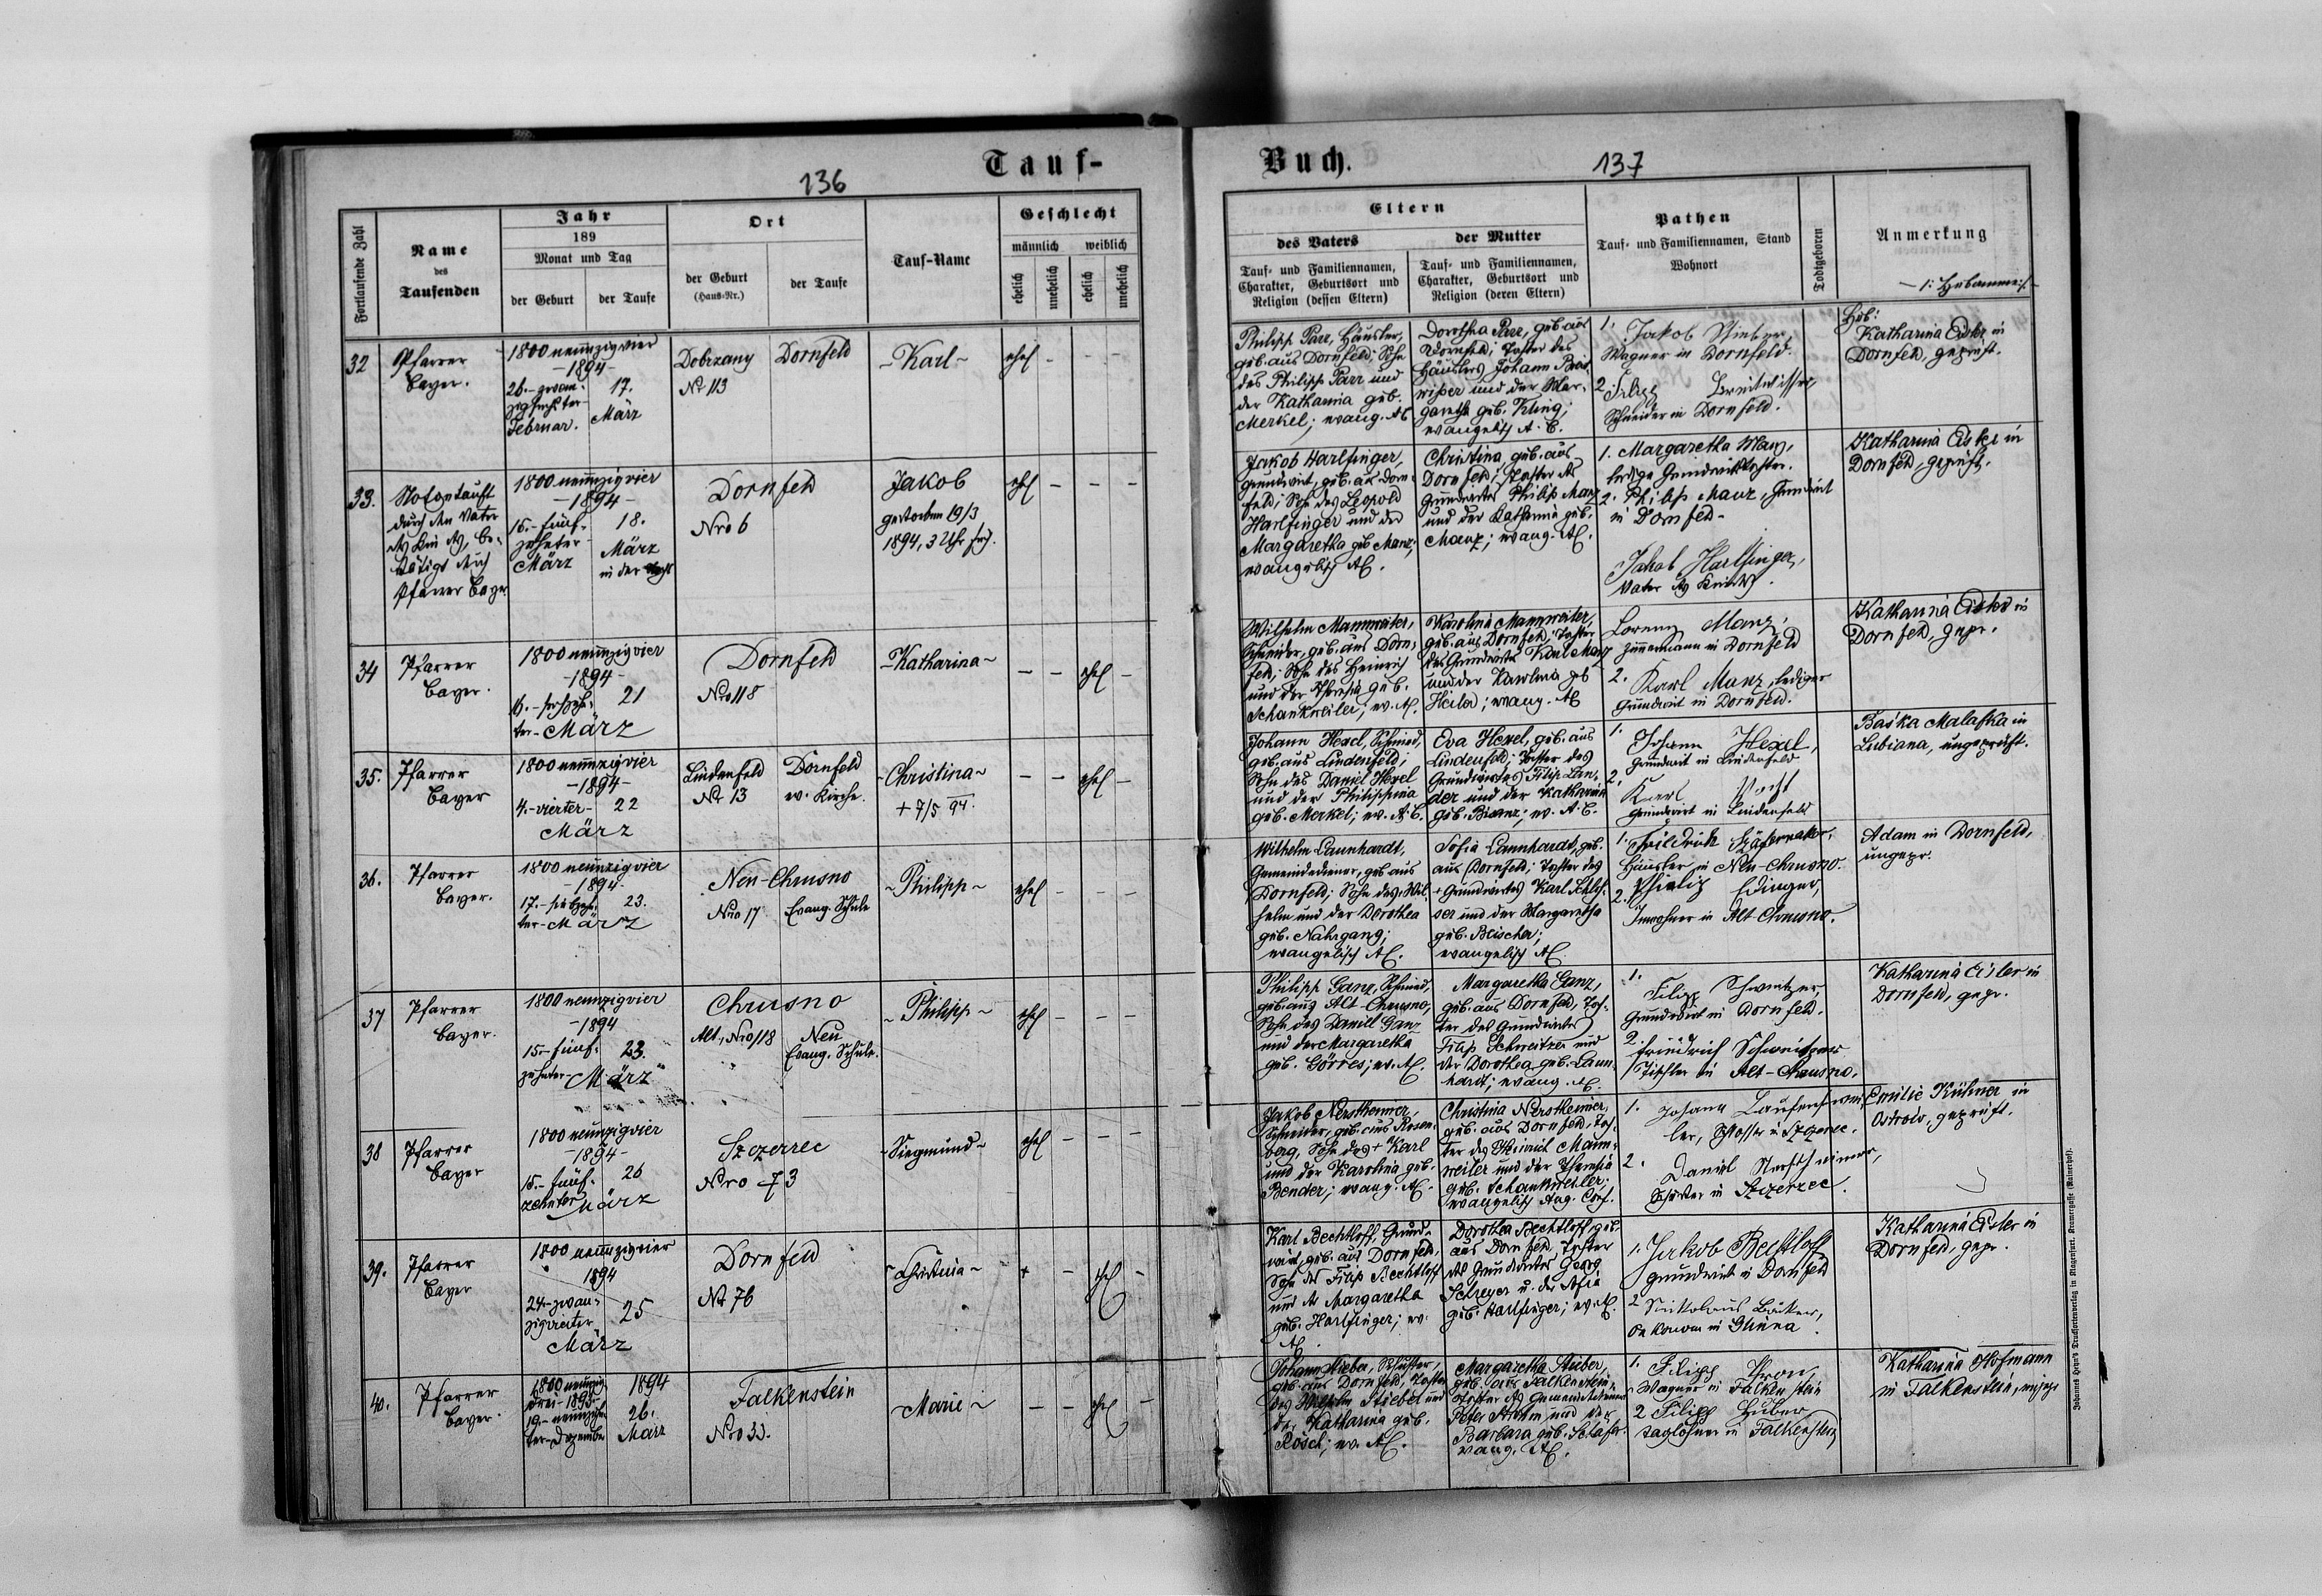 Tauf-
136
Fortlaufende Zahl
Name
des
Taufenden
Jahr
189
Monat und Tag
der Geburt
der Taufe
Ort
der Geburt
(Haus-Nr.)
der Taufe
Tauf-Name
Geschlecht
männlich
weiblich
ehelich
unehelich
ehelich
unehelich
32
Pfarrer
Bayer.
1800 neunzigvier
-1894-
26.-zwan-
zigsechster-
Februar.
17.
März
Dobrzany
Nr 113
Dornfeld
-Karl-
ehel
- - -
33.
Notgetauft
durch den Vater
des Kindes, be-
stätigt durch
Pfarrer Bayer
1800 neunzigvier
-1894-
15.-fünf-
zehnter-
März
18.
März
in der
Dornfeld
Nro 6
Jakob
gestorben 19/3
1894, 3 Uhr früh.
ehel
- - -
34
Pfarrer
Bayer.
1800 neunzigvier
-1894-
16.-sechzehn-
ter- März
21
Dornfeld
Nro 118
-Katharina-
- - ehel -
35.
Pfarrer
Bayer
1800 neunzigvier
-1894-
4.-vierter-
März
22
Lindenfeld
Nr 13
Dornfeld
ev. Kirche.
-Christina-
+ 7/5 94.
- - ehel -
36.
Pfarrer
Bayer.
1800 neunzigvier
-1894-
17.-siebzehn-
ter- März
23.
Neu-Chrusno
Nro 17
Evang. Schule
-Philipp-
ehel - - -
37
Pfarrer
Bayer.
1800 neunzigvier
-1894
15.-fünf-
zehnter- März
23.
Chrusno
Alt, Nro 118
Neu
Evang. Schule.
-Philipp-
ehel - - -
38
Pfarrer
Bayer
1800 neunzigvier
-1894-
15.-fünf-
zehnter März
26
Szczerzec
Nro 73
-Siegmund-
ehel - - -
39.
Pfarrer
Bayer
1800 neunzigvier
1894
24.-zwan-
zigvierter
März
25
Dornfeld
Nr 76
-Christina-
+ - ehel -
40.
Pfarrer
Bayer.
1800 neunzig
drei-1893-
19.-neunzehn-
ter-Dezember
1894
26.
März
Falkenstein
Nro 33.
-Marie-
- - ehel -
Buch.
137
Eltern
des Vaters
der Mutter
Tauf- und Familiennamen,
Charakter, Geburtsort und
Religion (dessen Eltern)
Tauf- und Familiennamen,
Charakter, Geburtsort und
Religion (deren Eltern)
Pathen
Tauf- und Familiennamen, Stand
Wohnort
Todtgeboren
Anmerkung
-/: Hebamme :/-
Philipp Parr, Häusler,
geb. aus Dornfeld; Sohn
des Philipp Parr und
der Katharina geb.
Merkel; evang. AC
Dorothea Parr, geb. aus
Dornfeld; Tochter des
Häuslers Johann Brei-
wißer und der Mar-
gareth geb. Kling;
evangelisch A. C.
1. Jakob Stieber,
Wagner in Dornfeld.
2. Filipp Breitwisser
Schneider in Dornfeld.
Heb:
Katharina Eisler in
Dornfeld, geprüft.
Jakob Harlfinger,
Grundwirt, geb. aus Dorn-
feld; Sohn des Leopold
Harlfinger und der
Margaretha geb. Manz;
evangelisch AC.
Christina geb. aus
Dornfeld; Tochter des
Grundwirtes Philipp Manz
und der Katharina geb.
Manz; evang. AC.
1. Margaretha Manz,
ledige Grundwirtstochter.
2. Philipp Manz, Grundwirt
in Dornfeld-
Jakob Harlfinger,
Vater des Kindes.
Katharina Eisler in
Dornfeld, geprüft.
Wilhelm Mannweiler,
Schneider, geb. aus Dorn-
feld; Sohn des Heinrich
und der Theresia geb.
Schankweiler; ev. AC.
Karolina Mannweiler,
geb. aus Dornfeld, Tochter
des Grundwirtes Karl Manz
und der Karolina geb
Heiler; evang. AC
Lorenz Manz,
Zimmermann in Dornfeld
2. Karl Manz, lediger
Grundwirt in Dornfeld.
Katharina Eisler in
Dornfeld, gepr.
Johann Hexel, Schmied,
geb. aus Lindenfeld;
Sohn des Daniel Hexel
und der Philippina
geb. Merkel; ev. A. C.
Eva Hexel, geb. aus
Lindenfeld; Tochter des
Grundwirtes Filip Lan-
der und der Katharina
geb. Bisanz; ev. A. C.
1. Johann Hexel,
Grundwirt in Lindenfeld
2. Karl
Grundwirt in Lindenfeld
Baśka Malafka in
Lubiana, ungeprüft.
Wilhelm Launhardt,
Gemeindediener, geb. aus
Dornfeld; Sohn des Wil-
helm und der Dorothea
geb. Nahrgang;
evangelisch AC.
Sofia Launhardt, geb.
aus Dornfeld; Tochter des
+ Grundwirtes Karl Schlos-
ser und der Margaretha
geb. Bischer;
evangelisch AC.
1. Friedrich
Häusler in Neu-Chrusno.
2. Philip Edinger,
Inwohner in Alt-Chrusno.
Adam in Dornfeld,
ungepr.
Philipp Ganz, Schmied,
geb. aus Alt-Chrusno,
Sohn des Daniel Ganz
und der Margaretha
geb. Görres; ev. AC.
Margaretha Ganz,
geb. aus Dornfeld, Toch-
ter des Grundwirtes
Filip Schweitzer und
der Dorothea geb. Laun-
hardt; evang. AC.
1. Filipp Schweitzer
Grundwirt in Dornfeld.
2. Friedrich Schweitzer
Tischler in Alt-Chrusno.
Katharina Eisler in
Dornfeld, gepr.
Jakob Nerstheimer,
Schneider, geb. aus Rosen-
berg, Sohn des + Karl
und der Karolina geb.
Bender; evang. AC.
Christina Nerstheimer,
geb. aus Dornfeld, Toch-
ter des Heinrich Mann-
weiler und der Theresia
geb. Schankweiler;
evangelisch Aug. Conf.
1. Johann
ler, Schlosser in Szczerzec.
2. Daniel Nerstheimer,
in Szczerzec.
Emilie Kühner in
Ostrow, geprüft.
Karl Bechtloff, Grund-
wirt, geb. aus Dornfeld,
Sohn des Filip Bechtloff
und der Margaretha
geb. Harlfinger; ev.
AC.
Dorothea Bechtloff, geb.
aus Dornfeld, Tochter
des Grundwirtes Georg
Schreyer u. der Sofia
geb. Harlfinger; ev. AC.
1. Jakob Bechtloff
Grundwirt in Dornfeld
2 Nikolaus
Oekonom in Glinna.
Katharina Eisler in
Dornfeld, gepr.
Johann Stieber, Schuster,
geb. aus Dornfeld,
des Wilhelm Stieber und
der Katharina geb.
Rösch; ev. AC.
Margaretha Stieber,
geb. aus Falkenstein,
Tochter des
Peter und der
Barbara geb. Schäfer.
evang. AC.
1. Filipp
Wagner in Falkenstein
2 Filipp Huber
Taglöhner in Falkenstein
Katharina Hofmann
in Falkenstein, ungepr
Johannes Heyn's Drucksortenverlag in Klagenfurt. Kramergasse (Rainerhof).